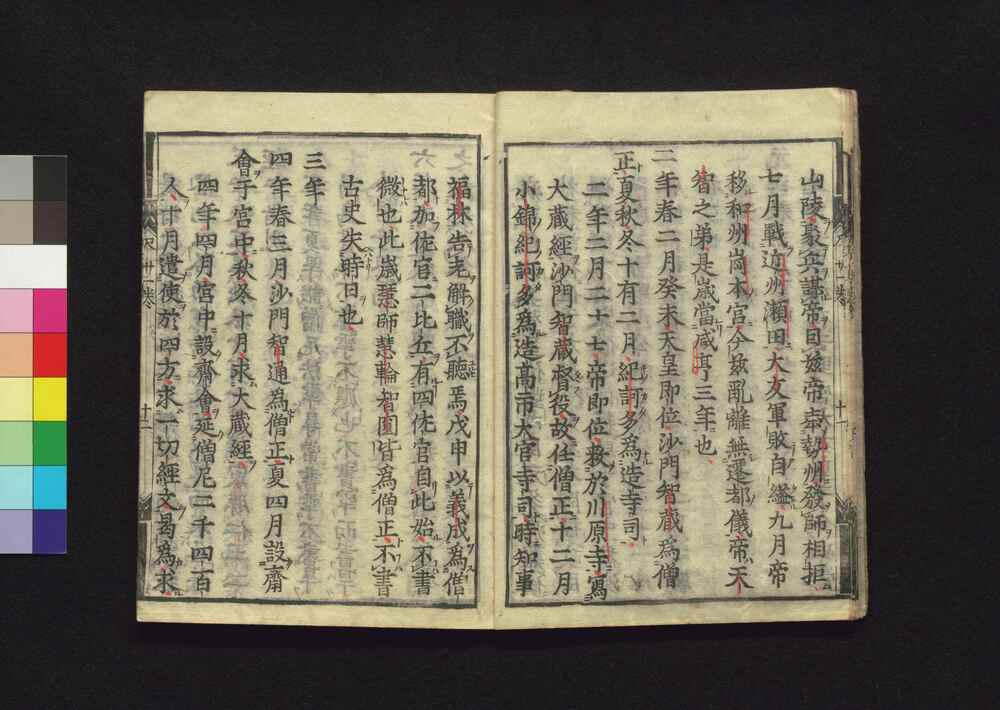 山陵聚兵議帝自茲帝奔勢州發師相拒
七月戰近州瀬田大友軍敗自縊九月帝
移和州崗本宮今玆亂離無遷都儀帝天
智之弟是歳當咸亨三年也
二年春二月癸未天皇即位沙門智蔵為僧
正夏秋冬十有二月紀訶多為造寺司
二年二月二十七帝即位敕於川原寺寫
大蔵經沙門智蔵督役故任僧正十二月
小錦紀訶多為造高市大官寺司時知事
福林告老解職不聽焉戊申以義成為僧
都加佐官二比丘有四佐官自此始不書
微也此歳慧師慧輪智圓皆為僧正不書
古史失時日也
三年
四年春三月沙門智通為僧正夏四月設齋
會于宮中秋冬十月求大蔵經
四年四月宮中設齋會延僧尼二千四百
人十月遣使於四方求一切經文曷為求
尺廿一巻
十一
尺廿一巻
十二